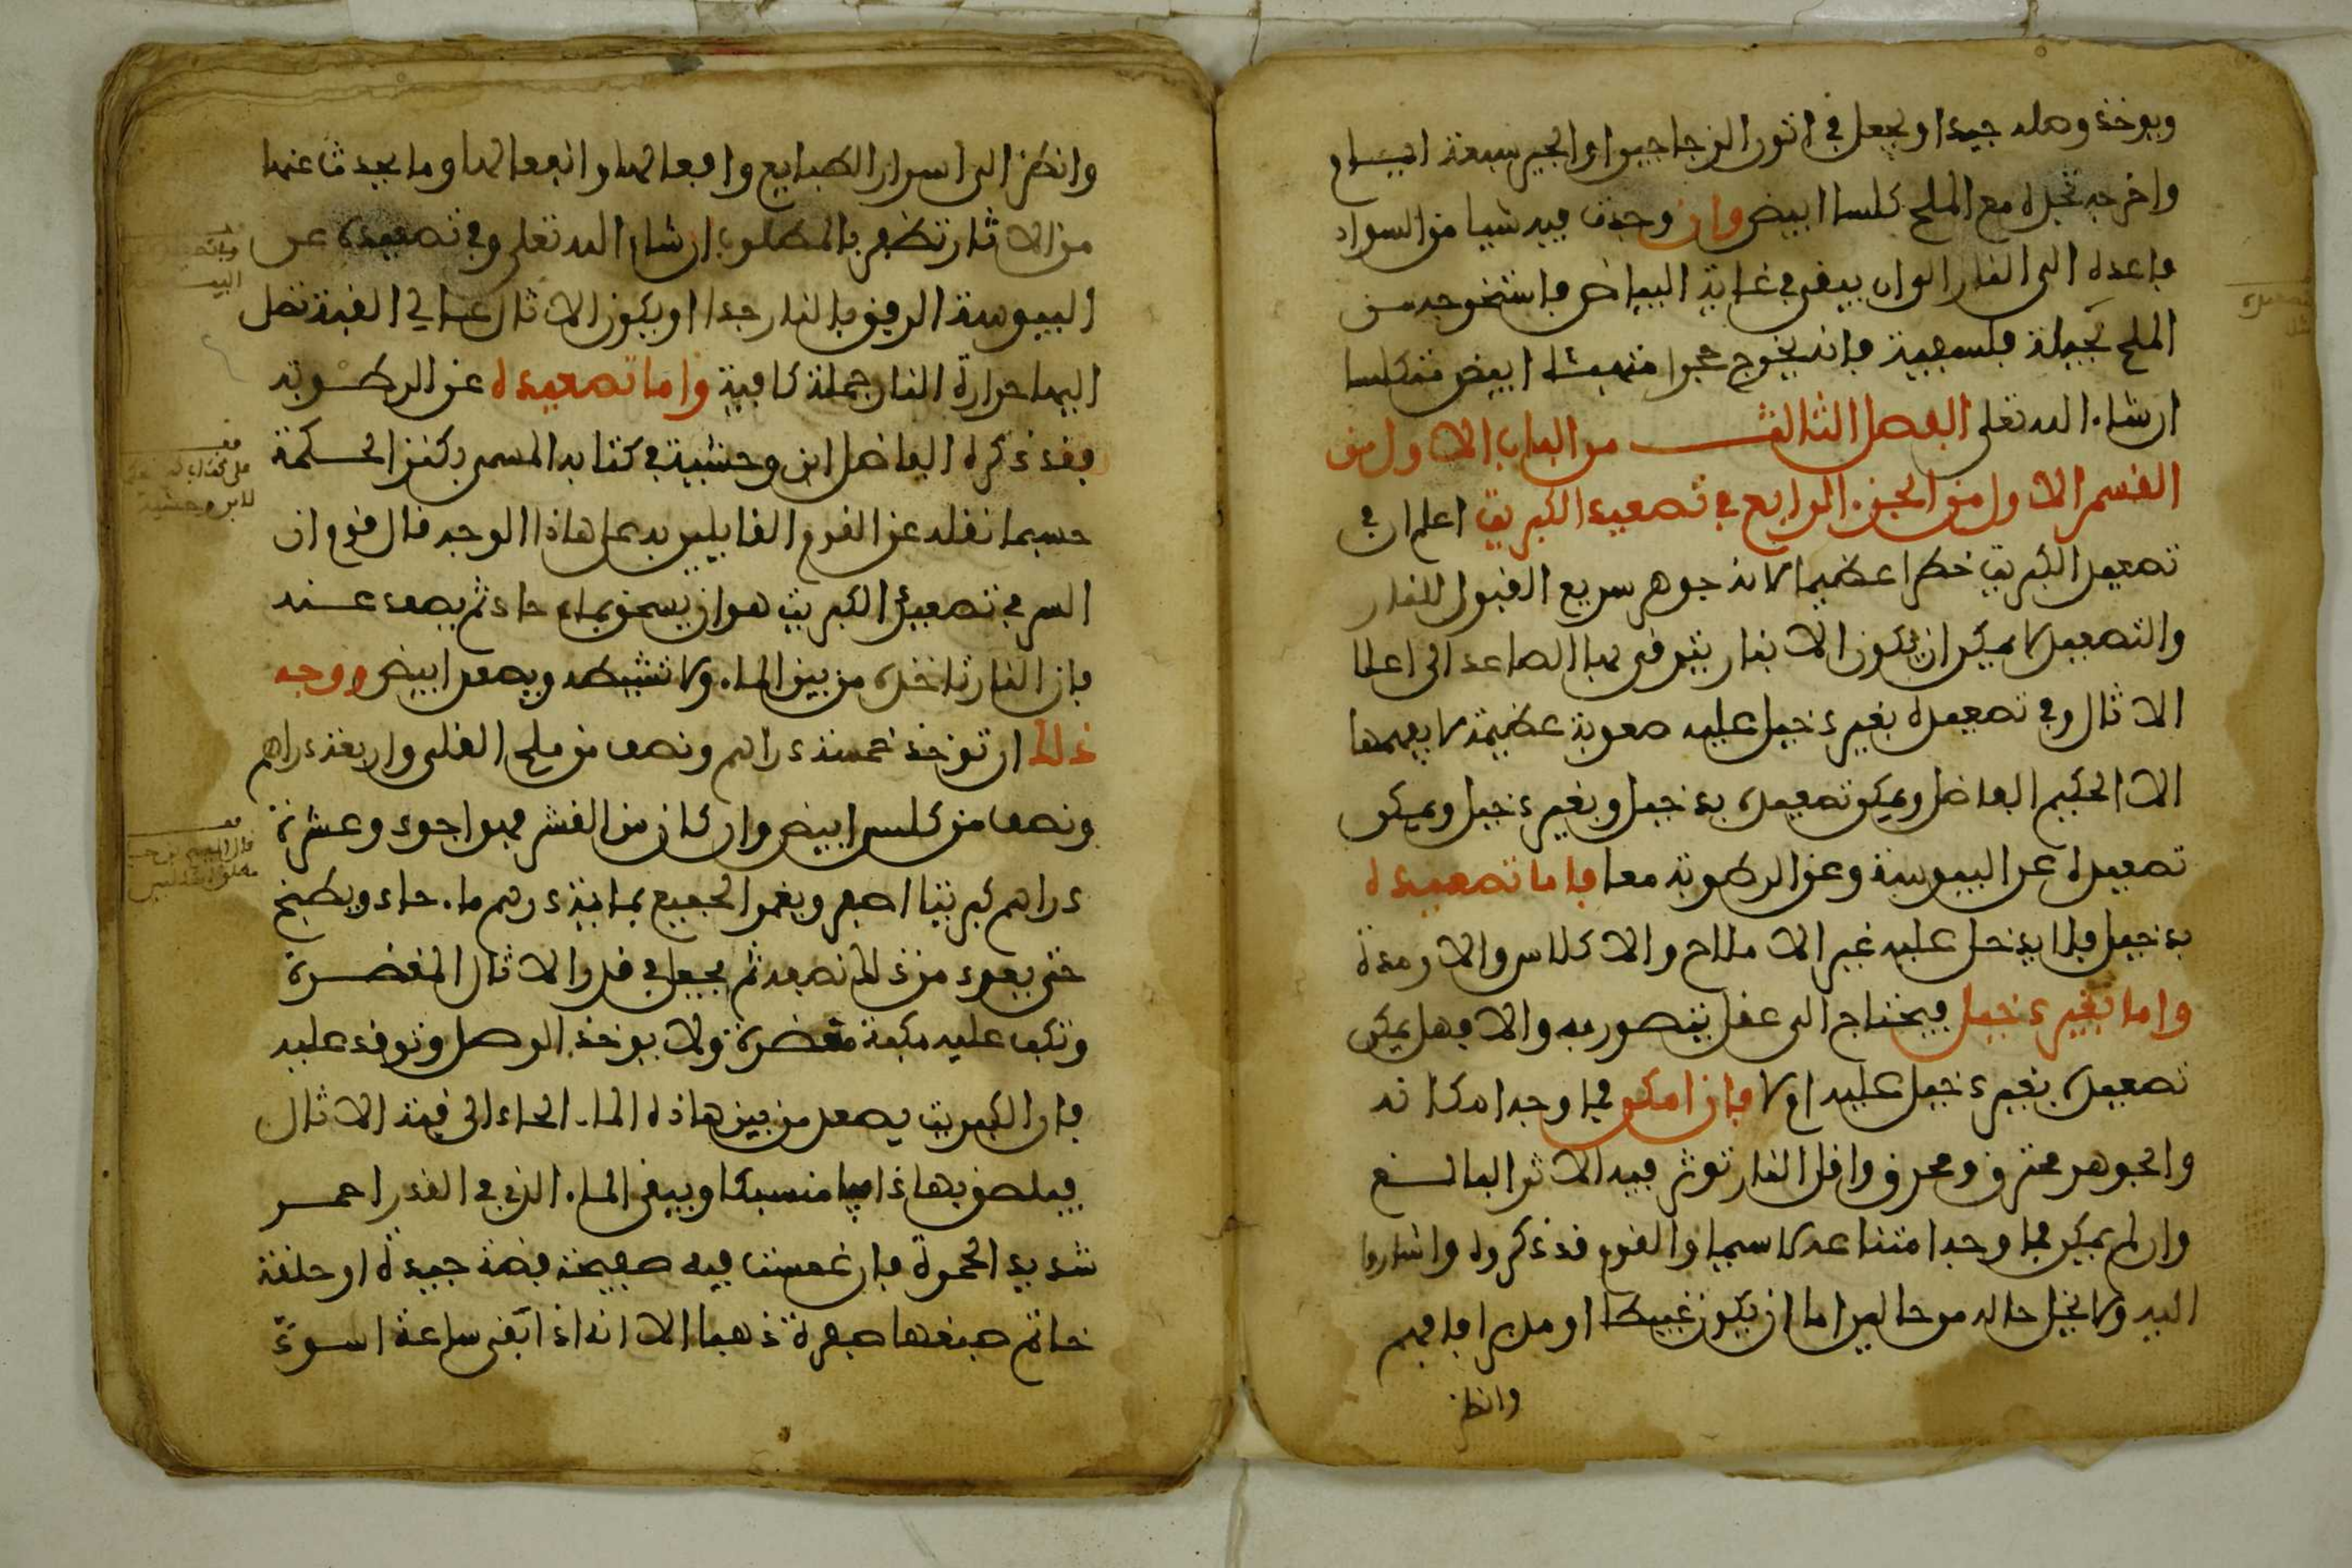 ويوخذ وصله جيدا ويجعل في اتون الزجاجين او الجير سبعة ايام
واخرجه تجده مع الملح كلسا ابيض وان وجدت فيه شيا من السواد
فاعده الى النار الى ان يبقى في غاية البياض فاستخرجه من
الملح بحيلة فلسفية فانه يخرج حجرا متهبئا ابيض متكلسا
ان شاء الله تعلى الفصل الثالث من الباب الاول من
القسم الاول من الجزء الرابع في تصعيد الكبريت اعلم ان في
تصعيد الكبريت خطرا عظيما لانه جوهر سريع القبول للنار
والتصعيد لا يمكن ان يكون الا بنار يترقى بها الصاعد الى اعلا
الاثال وفي تصعيده بغير دخيل عليه صعوبة عظيمة لا يفهمها
الا الحكيم الفاضل ويمكن تصعيده بدخيل وبغير دخيل ويمكن
تصعيده عن اليبوسة وعن الرطوبة معا فاما تصعيده
بدخيل فلا يدخل عليه غير الاملاح والاكلاس والارمدة
واما بغير دخيل فيحتاج الى عقل يتصور به والا فهل يمكن
تصعيده بغير دخيل عليه ام لا فان امكن فما وجه امكانه
والجوهر محترق ومحرق واقل النار توثر فيه الاثر البالغ
وان لم يمكن فما وجه امتناعه لا سيما والقوم قد ذكروه واشاروا
اليه ولا يخل حاله من حالين اما ان يكون غبيطا او مدبرا فافهم
وانظر
وانظر الى اسرار الطبايع وافعالها وانفعالها وما يحدث عنها
من الاثار تظفر بالمطلوب ان شاء الله تعلى وفي تصعيده عن
اليبوسة الرفق بالنار جدا او يكون الاثال عالي القبة تصل
اليها حرارة النار جملة كافية واما تصعيده عن الرطوبة
فقد ذكره الفاضل ابن وحشية في كتابه المسمى بكنز الحكمة
حسبما نقله عن القوم القايلين به على هاذا الوجه قال قوم ان
السر في تصعيد الكبريت هو ان يسحق بماء حاد ثم يصعد عنه
فان النار تاخذه من بين الماء ولا تشيطه ويصعد ابيض ووجه
ذلك ان توخذ خمسة دراهم ونصف من ملح القلى واربعة دراهم
ونصف من كلس ابيض وان كان من القشر فهو اجود وعشرة
دراهم كبريتا اصفر ويغمر الجميع بماية درهم ماء حاد ويطبخ
حتى يعود من ذلك نصفه ثم يجعل في قدر الاثال المغضرة
وتكب عليه مكبة مغضرة ولا يوخذ الوصل وتوقد عليه
فان الكبريت يصعد من بين هاذه الماء الحاد الى قبة الاثال
فيلصق بها ذايبا منسبكا ويبقى الماء الذي في القدر احمر
شديد الحمرة فان غمست فيه صفيحة فضة جيدة او حلقة
خاتم صبغها صفرة ذهبا الا انه اذا بقى ساعة اسود